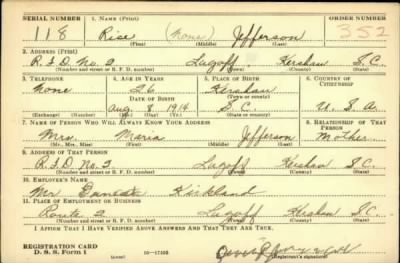 SERIAL NUMBER 1. NAME (Print) ORDER NUMBER
118 Rise (None) Jefferson 352
(First) (Middle) (Last)
2. ADDRESS (Print)
R.F.D. No. 2 Lugoff Kershaw S.C.
(Number and street or R. F. D. number) (Town) (County) (State)
3. TELEPHONE 4. AGE IN YEARS 5. PLACE OF BIRTH 6. COUNTRY OF CITIZENSHIP
None 26 Kershaw
DATE OF BIRTH (Town or county)
Aug. 8 1914 S.C. U.S.A.
(Exchange) (Number) (Mo.) (Day) (Yr.) (State or country)
7. NAME OF PERSON WHO WILL ALWAYS KNOW YOUR ADDRESS 8. RELATIONSHIP OF THAT PERSON
Mrs. Maria Jefferson Mother
(Mr., Mrs., Miss) (First) (Middle) (Last)
9. ADDRESS OF THAT PERSON
R.F.D. No. 2 Lugoff Kershaw S.C.
(Number and street or R. F. D. number) (Town) (County) (State)
10. EMPLOYER'S NAME
Mr. Kirkland
11. PLACE OF EMPLOYMENT OR BUSINESS
Route 2 Lugoff Kershaw S.C.
(Number and street or R. F. D. number) (Town) (County) (State)
I AFFIRM THAT I HAVE VERIFIED ABOVE ANSWERS AND THAT THEY ARE TRUE.
REGISTRATION CARD
D. S. S. Form 1 (over) 16-17105 (Registrant's signature)